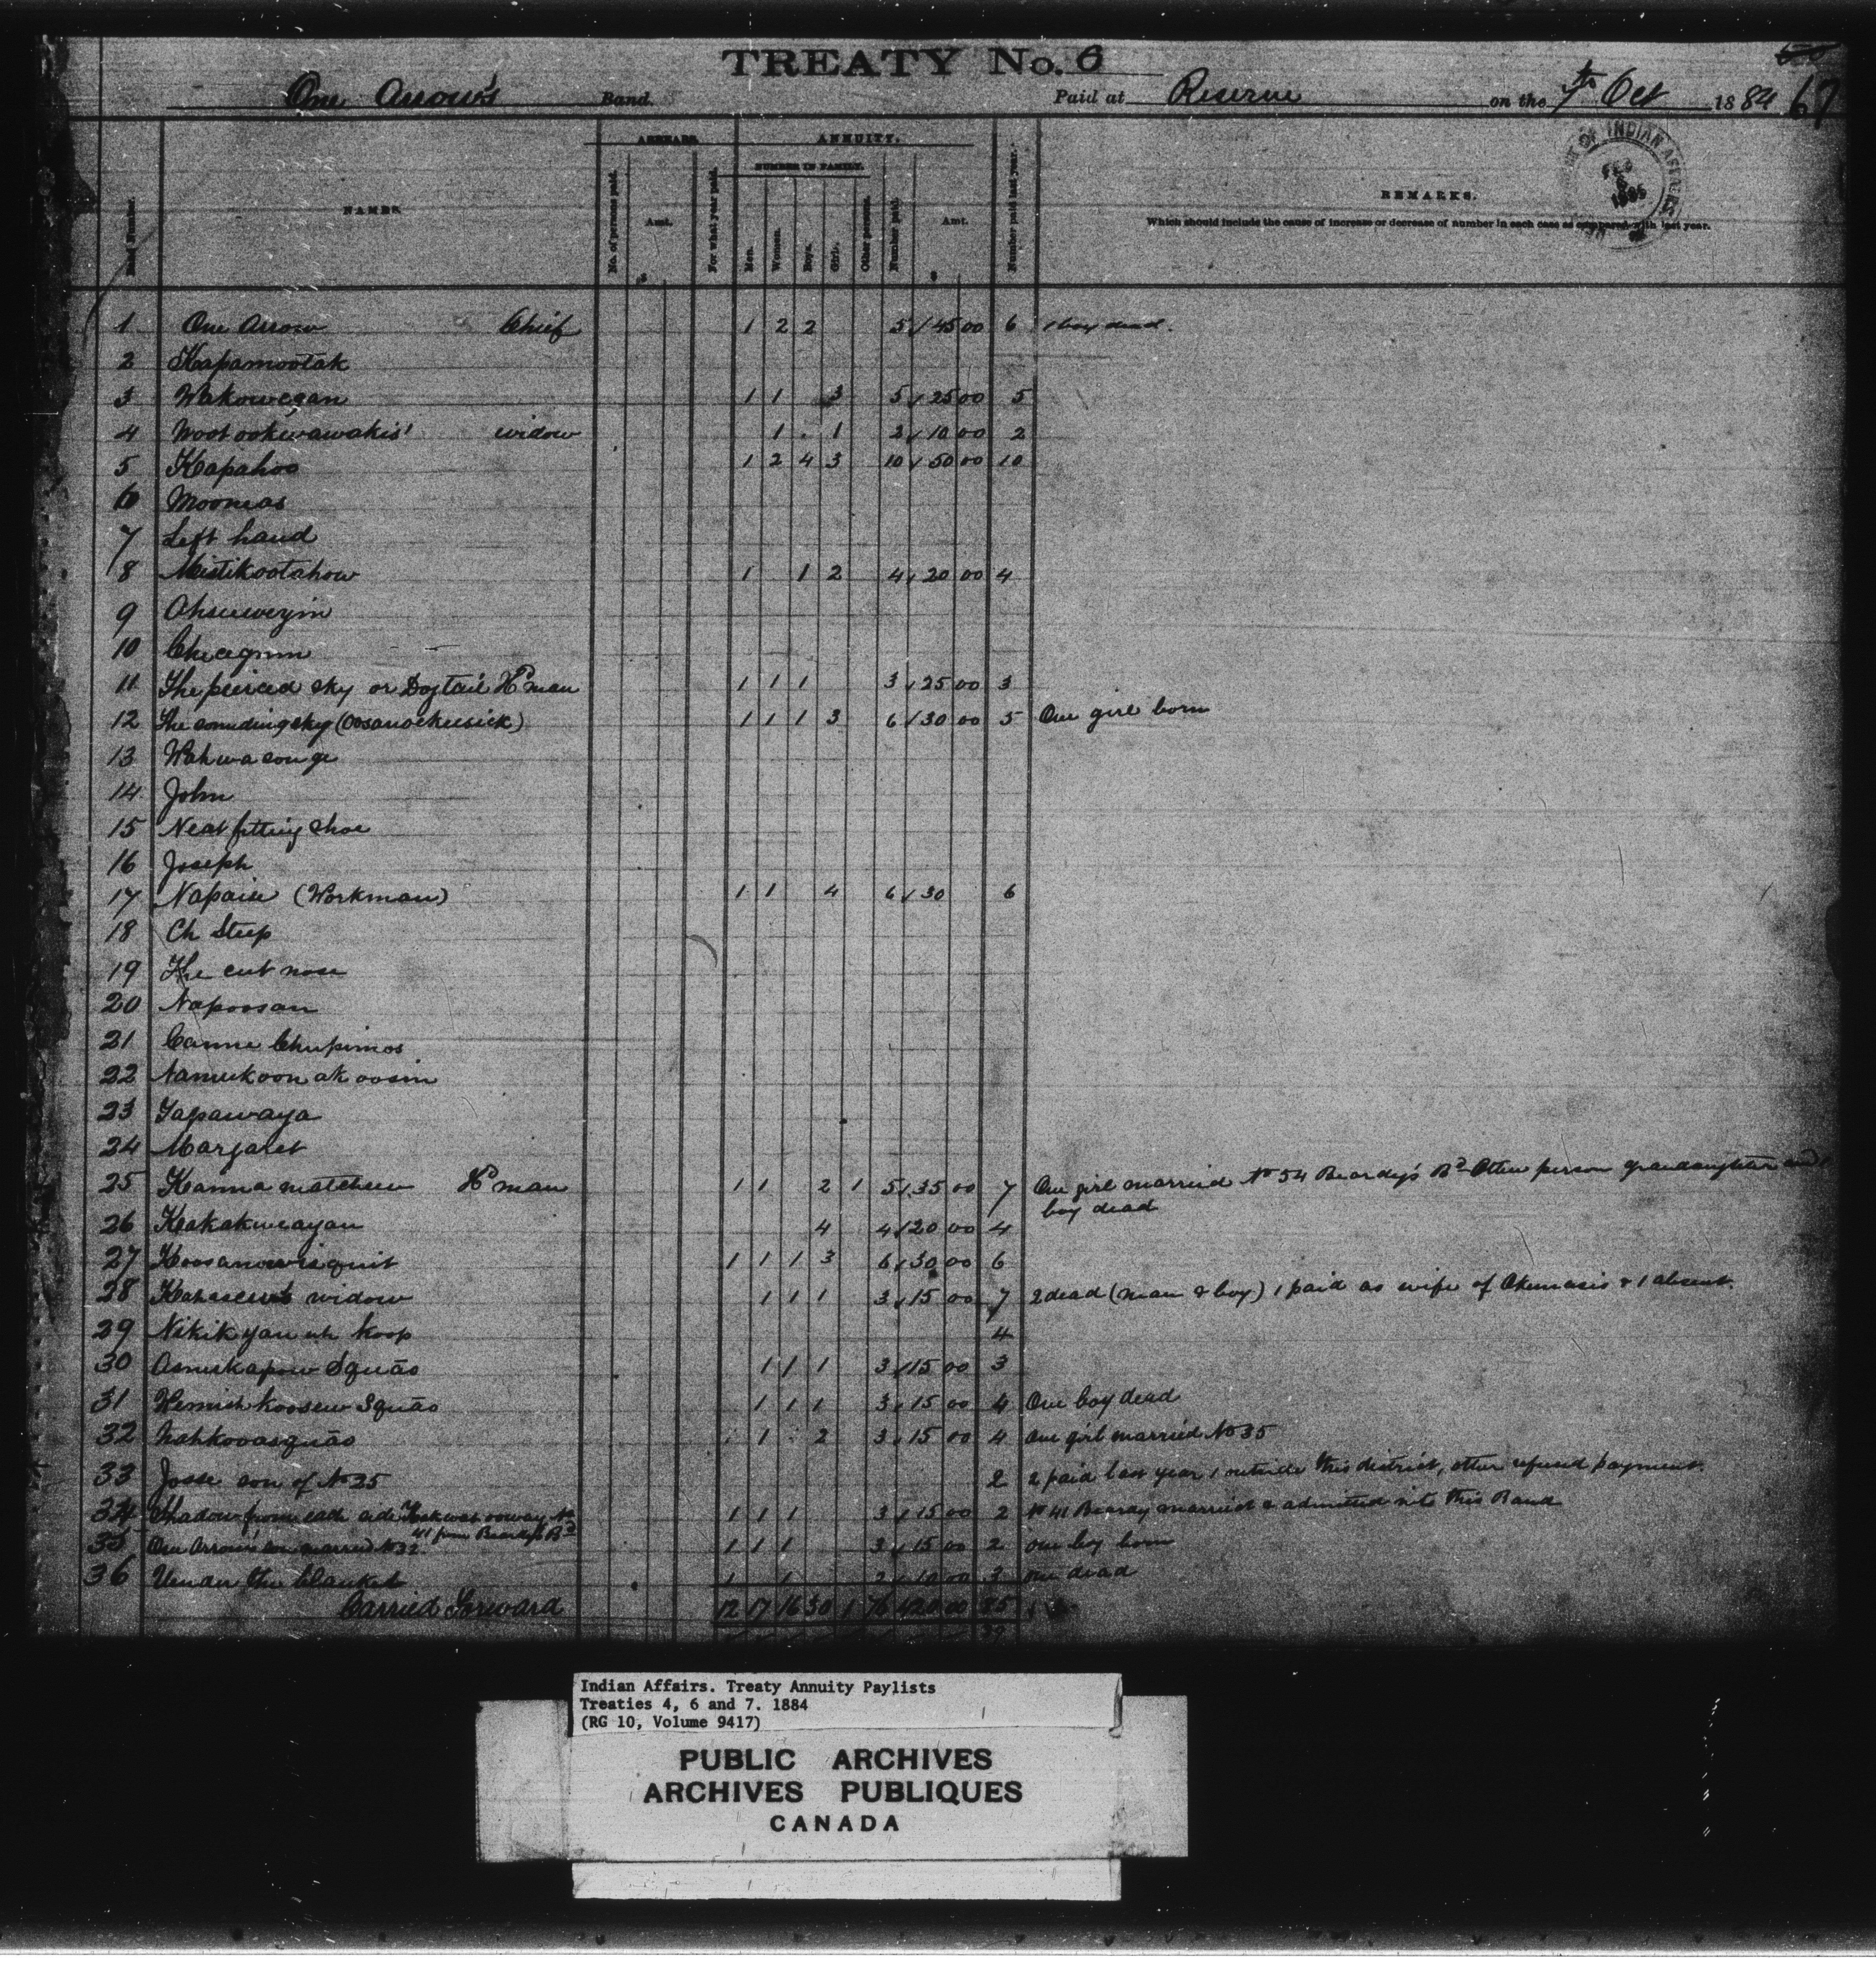 TREATY No. 6
One Arrow's Band Paid at Reserve on the 7th Oct 1884 67
Band Number. NAMES. ARREARS. ANNUITY. REMARKS.
No. of persons paid. Amt. For what year paid. NUMBER IN FAMILY. Men. Women. Boys. Girls. Other persons. Number paid. Amt. Number paid last year.
Which should include the cause of increase or decrease of number in each case as compared with last year.
OF INDIAN AFFAIRS
1 One Arrow Chief 1 2 2 5 45 00 6 1 boy dead.
2 Kapamootak
3 Wakowegan 1 1 3 5 25 00 5
4 widow 1 1 2 10 00 2
5 Kapahoo 1 2 4 3 10 50 00 10
6 Mooneas
7 Left hand
8 Mistikootahow 1 1 2 4 20 00 4
9
10
11 The peirced sky or Dogtail Hd man 1 1 1 3 25 00 3
12 The sounding sky 1 1 1 3 6 30 00 5 One girl born
13
14 John
15 Neat fitting shoe
16 Joseph
17 Napaise (Workman) 1 1 4 6 30 6
18 Ch Steep
19 The cut nose
20 Napoosan
21
22
23 Tapawaya
24 Margaret
25 Kanna matchew Hd man 1 1 2 1 5 35 00 7 One girl married No 54 Beardy's Bd Other person grandaughter and 1
boy dead
26 4 4 20 00 4
27 1 1 1 3 6 30 00 6
28 widow 1 1 1 3 15 00 7 2 dead (man & boy) 1 paid as wife of Okemasis & 1 absent.
29 4
30 Squāo 1 1 1 3 15 00 3
31 Squāo 1 1 1 3 15 00 4 One boy dead
32 1 2 3 15 00 4 One girl married No 35
33 Josse son of No 25 2 2 paid last year 1 outside this district, other refused payment.
34 Shadow from each side 1 1 1 3 15 00 2 No 41 Beardy married & admitted into this Band
41 from Beardy's Bd
35 One Arrow's son married No 32. 1 1 1 3 15 00 2 one boy born
36 Under the blanket 1 1 2 10 00 3 one dead
Carried Forward 12 17 16 30 1 76 420 00 85
Indian Affairs. Treaty Annuity Paylists
Treaties 4, 6 and 7. 1884
(RG 10, Volume 9417)
PUBLIC ARCHIVES
ARCHIVES PUBLIQUES
CANADA